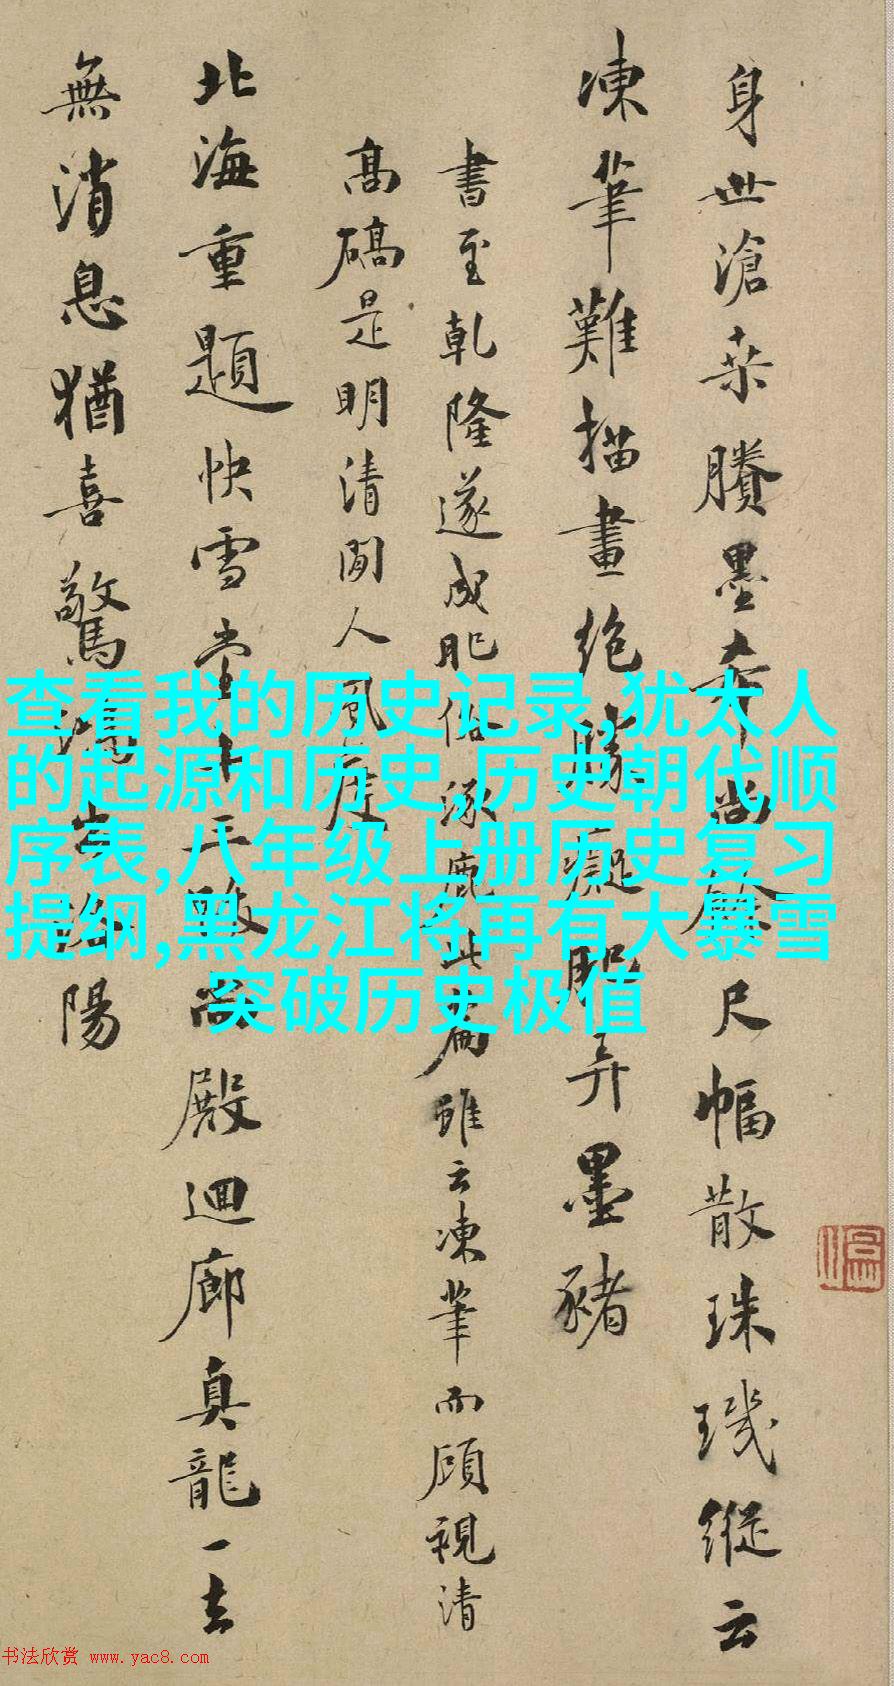 身世滄桒賸墨奇尚餘尺幅散珠璣縱云
凍筆難描畫絶勝癡肥弄墨豬
書至乾隆遂成肥俗涿鹿此篇雖云凍筆而顧視清
高礄是明清間人風度
北海重題快雪堂殿迴廊真龍一去
無消息猶喜驚鴻洛陽
查看我的历史记录,犹太人
的起源和历史,历史朝代顺
序表,八年级上册历史复习
提纲,黑龙江将再有大暴雪
突破历史极值
书法欣赏 www.yac8.com